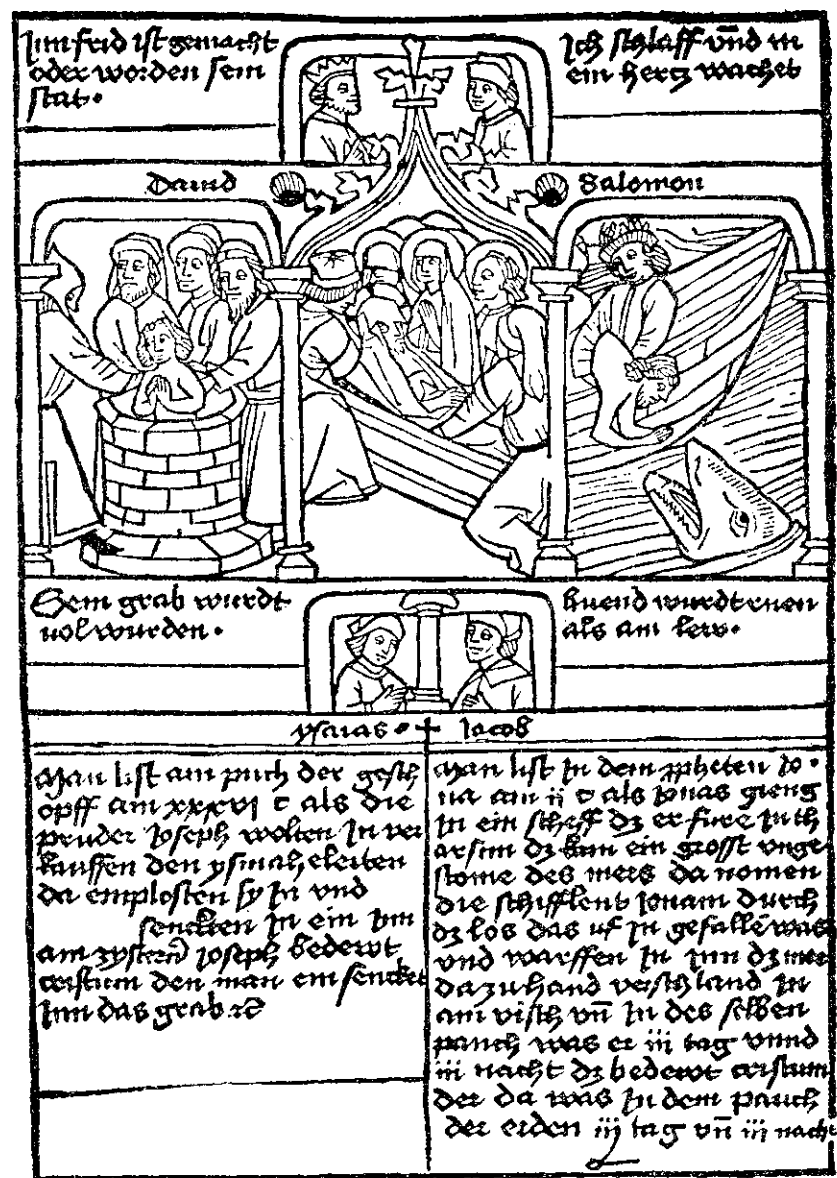 Jnn frid ist gemacht
oder worden sein
stat.
Ich schlaff vnd m
ein hertz wachet
Dauid
Salomon
Sein grab wurdt
uol wurden.
Ruend wurdt ruen
als am lew.
ysaias. + Jacob
Man list am puch der gesch
öpff am xxxvi c als die
pruder Joseph wolten Jn ver
kauffen den ysmaheleiten
da emplosten sy Jn vnd
senckten Jn ein Jnn
am zystern Joseph bedewt
cristum den man ein sencket
Jnn das grab ꝛc
Man list Jn dem ꝓpheten Jo.
na am ii c als Jonas gieng
Jn ein scheff dz er fure Jn th
arsim dz kam ein grosst vnge
stome des mers da nomen
die schifflent Jonam durch
dz los das uf Jn gefallē was
vnd warffen Jn Jnn dz mer
da zu hand verschland Jn
am visch vn̄ Jn des selben
pauch was er iii tag vnnd
iii nacht dz bedewt cristum
der da was Jn dem pauch
der erden iij tag vn̄ iii nacht